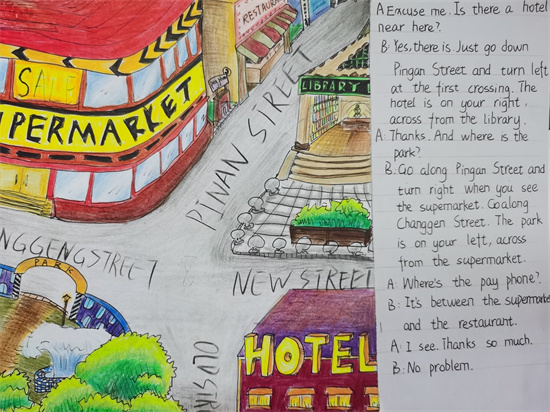 RESTAURA
SALE
UPERMARKET
PINAN STREET
LIBRARY
NGGENGSTREET
PARK
NEW STREET
HOTEL
A Excuse me. Is there a hotel
near here?
B: Yes, there is. Just go down
Pingan Street and turn left
at the first crossing. The
hotel is on your right,
across from the library.
A: Thanks. And where is the
park?
B. Go along Pingan Street and
turn right when you see
the supermarket. Goalong
Changgen Street. The park
is on your left, across
from the supermarket.
A: Where's the pay phone?
B: It's between the supermarke
and the restaurant.
A: I see. Thanks so much.
B: No problem.